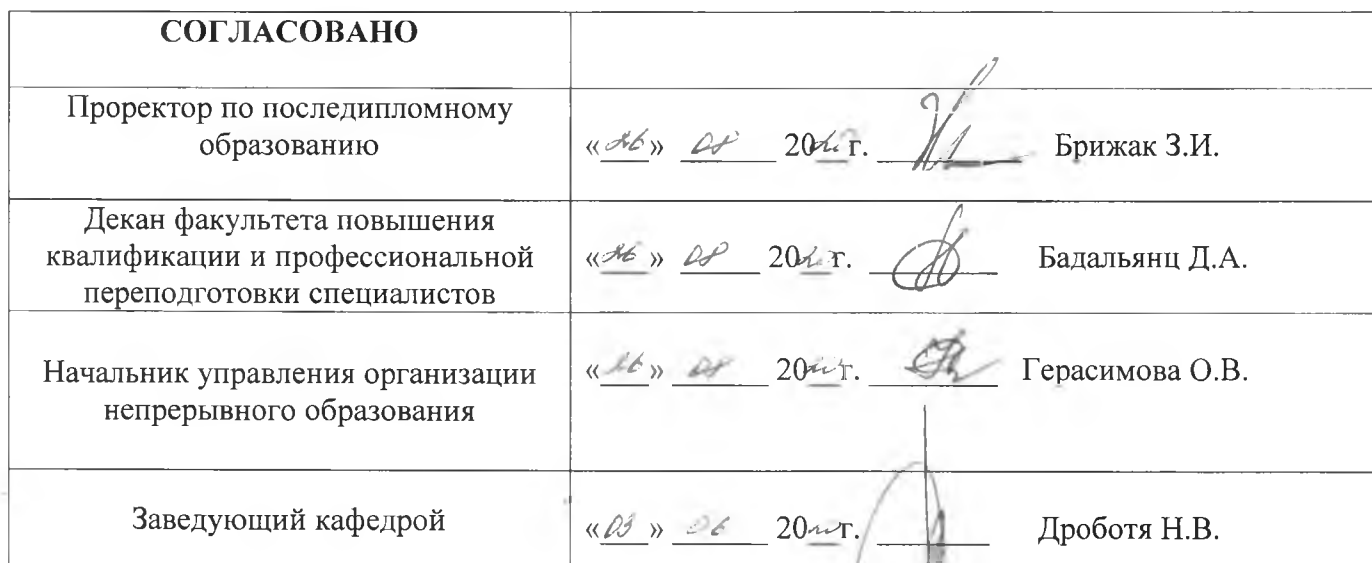 СОГЛАСОВАНО
Проректор по последипломному
образованию
«26» 08 20 г. Брижак З.И.
Декан факультета повышения
квалификации и профессиональной
переподготовки специалистов
«26» 08 20 г. Бадальянц Д.А.
Начальник управления организации
непрерывного образования
«26» 08 20 г. Герасимова О.В.
Заведующий кафедрой
«03» 06 20 г. Дроботя Н.В.